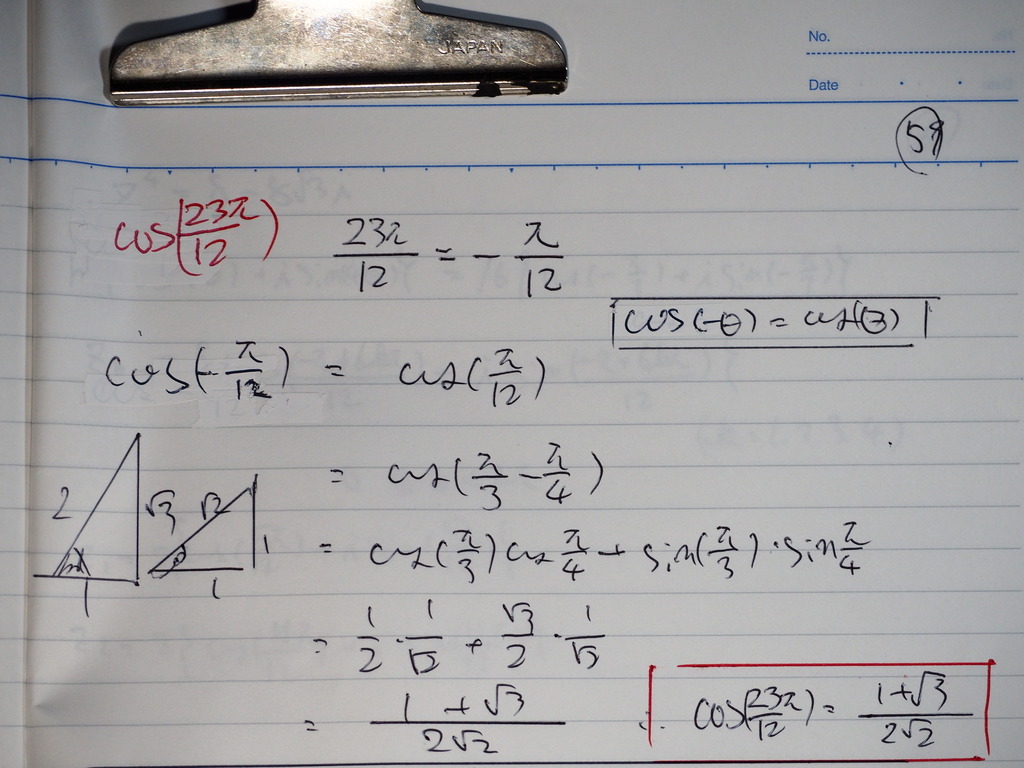 JAPAN
No.
Date
59
cos(23π/12) 23π/12 = -π/12
cos(-θ) = cos(θ)
cos(-π/12) = cos(π/12)
= cos(π/3 - π/4)
2 √3 √2 1
1 1
= cos(π/3) cos π/4 + sin(π/3) · sin π/4
= 1/2 · 1/√2 + √3/2 · 1/√2
= (1+√3)/(2√2)
∴ cos(23π/12) = (1+√3)/(2√2)